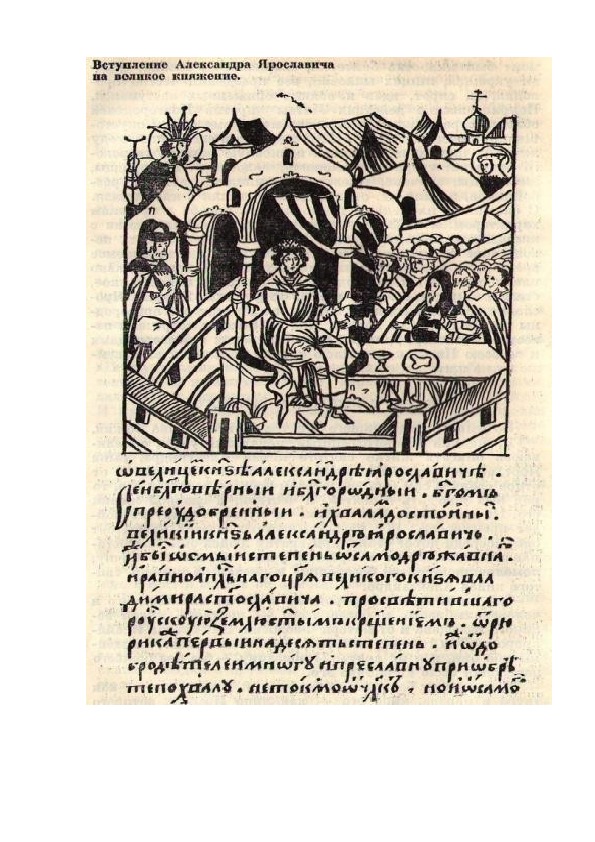 Вступление Александра Ярославича
на великое княжение.
ѡвелицемкнѕѣалександрѣꙗрославичѣ .
сеиблговѣрныи иблгорѡдныи . бгомъ
преоудобренныи . ихваладостоиныи .
великїикнѕьалександръꙗрославичь .
ибысѡсмыистепеньѿсамодръжавна .
иравноапльнагоцрѧвеликогокнѕѧвла
димирасвтославича . просвѣтившаго
роусскуюземлюстымъкрщенїемъ . ѿрю
рикажпервыинадесѧтьстепень . иѿдо
бродѣтелеимнѡгуипреславнупрїѡбрѣ
тепохвалу . нетокмоѿчлкъ , ноиѿсамо